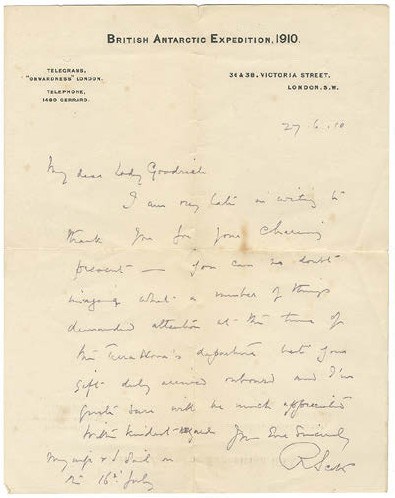 BRITISH ANTARCTIC EXPEDITION, 1910.
TELEGRAMS,
"ONWARDNESS" LONDON.
TELEPHONE,
1480 GERRARD.
36 & 38, VICTORIA STREET,
LONDON. S.W.
27 6. 10
My dear Lady Goodrich
I am very late in writing to
thank you for your charming
present — You can no doubt
imagine what a number of things
demanded attention at the time of
the Terra Nova's departure but your
gift duly arrived onboard and I'm
quite sure will be much appreciated
With kindest regards Yours Sincerely
R Scott
My wife & I sail on
the 16th July